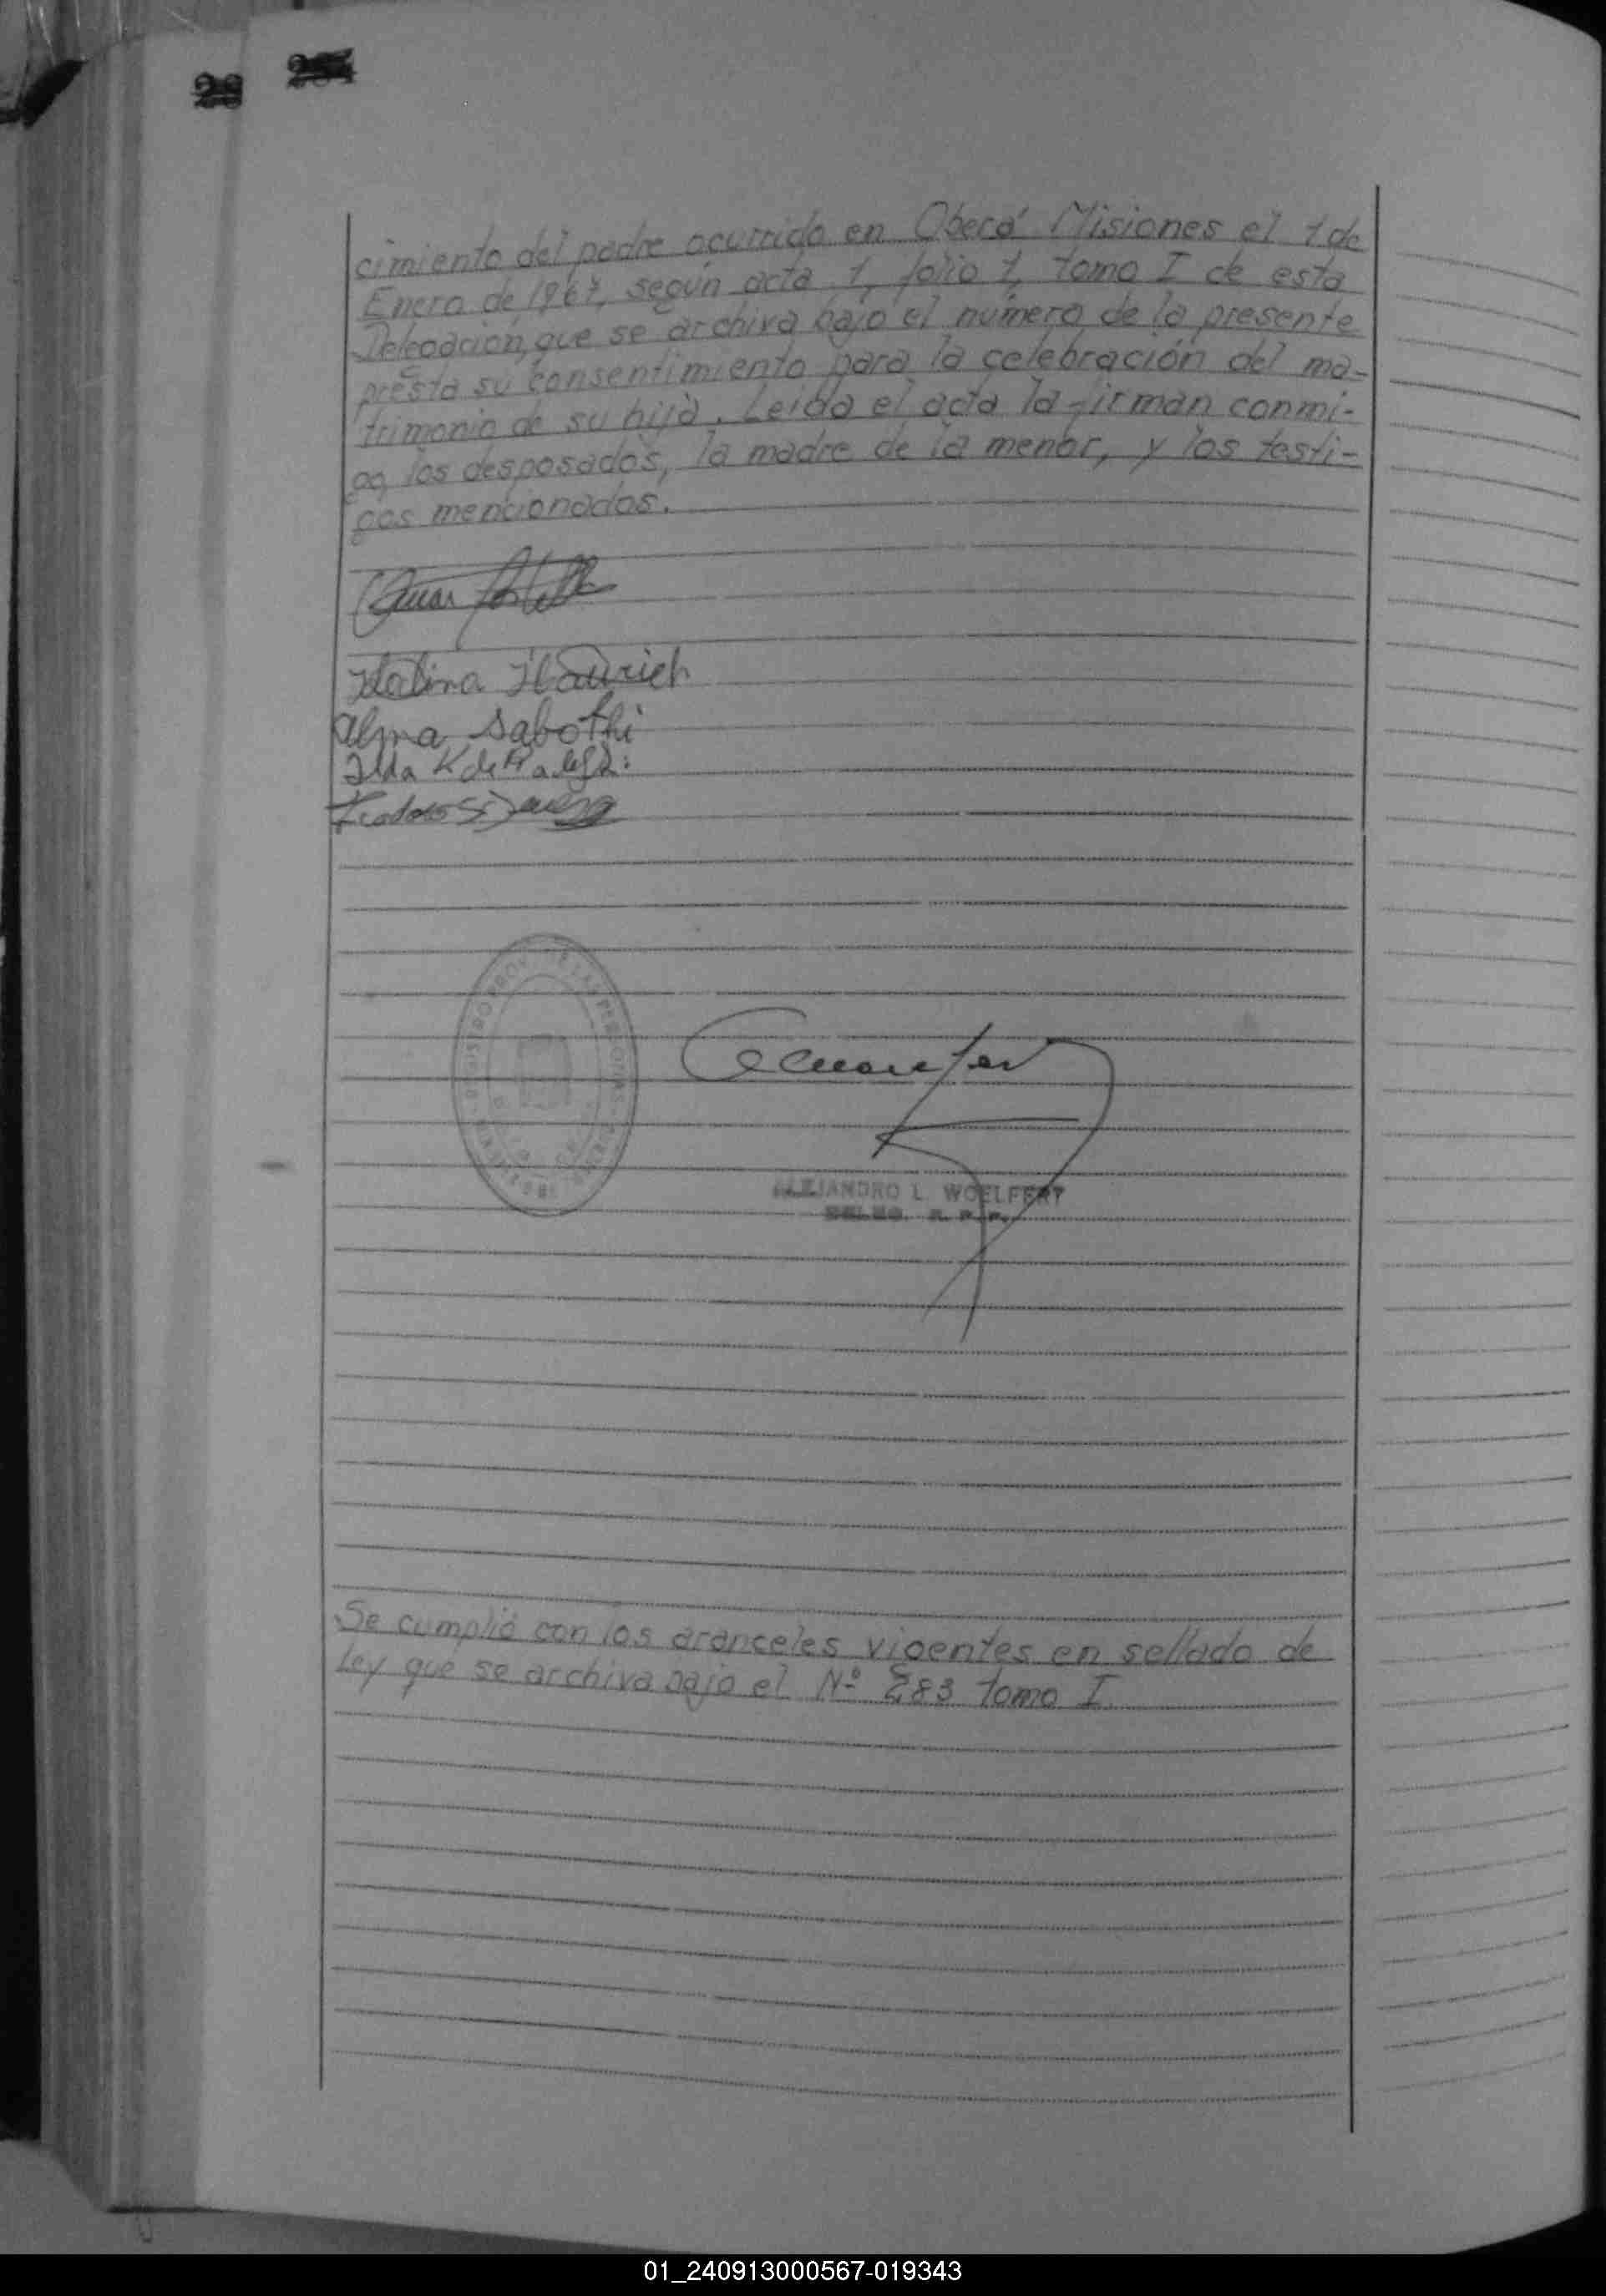 254
cimiento del padre ocurrido en Oberá Misiones el 1 de
Enero de 1967, según acta 1, folio 1, tomo I de esta
Delegación, que se archiva bajo el número de la presente
presta su consentimiento para la celebración del ma-
trimonio de su hija. Leída el acta la firman conmi-
go, los desposados, la madre de la menor, y los testi-
gos mencionados.
Halina Haurich
Alma Sabothi
Ilda K de
ALEJANDRO L. WOELFERT
R. P. P.
Se cumplió con los aranceles vigentes en sellado de
Ley que se archiva bajo el Nº 283 Tomo I
01_240913000567-019343